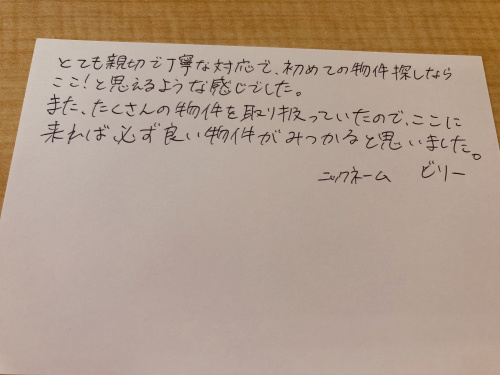 とても親切で丁寧な対応で、初めての物件探しなら
ここ!と思えるような感じでした。
また、たくさんの物件を取り扱っていたので、ここに
来れば必ず良い物件がみつかると思いました。
ニックネーム ビリー